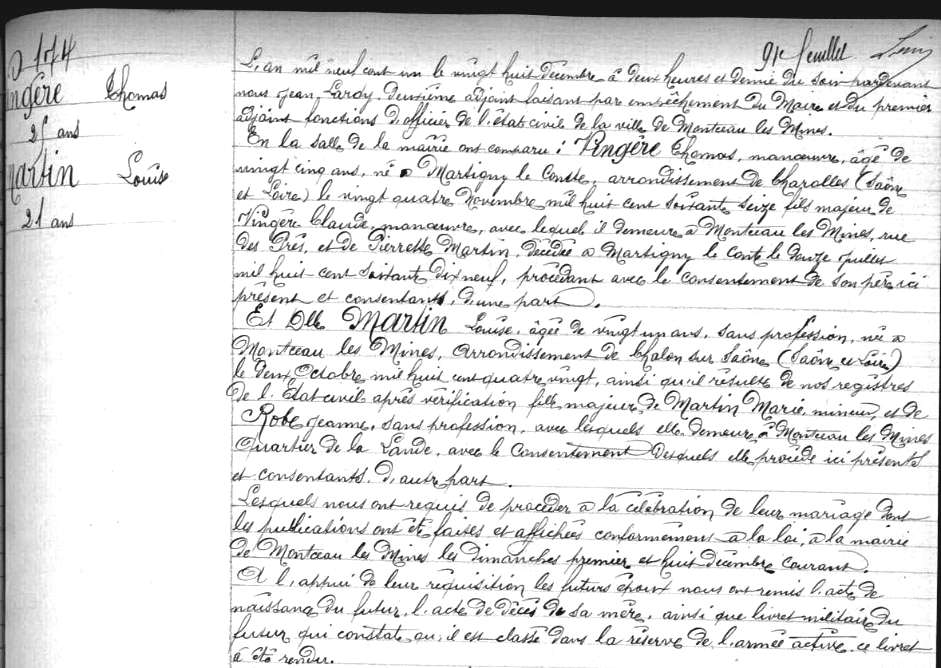 174
Vingère Thomas
25 ans
Martin Louise
21 ans
91e feuillet
L'an mil neuf cent un le vingt huit décembre à deux heures et demie du soir pardevant
nous Jean Laroy, deuxième adjoint faisant par empêchement du Maire et du premier
adjoint fonctions d'officier de l'état civil de la ville de Montceau les Mines.
En la salle de la mairie ont comparu : Vingère Thomas, manœuvre, âgé de
vingt cinq ans, né à Martigny le Comte, arrondissement de Charolles (Saône
et Loire) le vingt quatre Novembre mil huit cent soixante seize fils majeur de
Vingère Claude, manœuvre, avec lequel il demeure à Montceau les Mines, rue
des Prés, et de Pierrette Martin, décédée à Martigny le Comte le douze juillet
mil huit cent soixante dix neuf, procédant avec le consentement de son père ici
présent et consentant, d'une part.
Et Dlle Martin Louise, âgée de vingt un ans, sans profession, née à
Montceau les Mines, Arrondissement de Chalon sur Saône (Saône et Loire)
le deux Octobre mil huit cent quatre vingt, ainsi qu'il résulte de nos registres
de l'Etat civil après vérification fille majeure de Martin Marie, mineur, et de
Robe Jeanne, sans profession, avec lesquels elle demeure à Montceau les Mines
Quartier de la Lande, avec le Consentement desquels elle procède ici présents
et consentants, d'autre part.
Lesquels nous ont requis de procéder à la célébration de leur mariage dont
les publications ont été faites et affichées conformément à la loi, à la mairie
de Montceau les Mines les Dimanches premier et huit décembre courant.
A l'appui de leur réquisition les futurs époux nous ont remis l'acte de
naissance du futur, l'acte de décès de sa mère, ainsi que livret militaire du
futur qui constate qu'il est classé dans la réserve de l'armée active, ce livret
a été rendu.